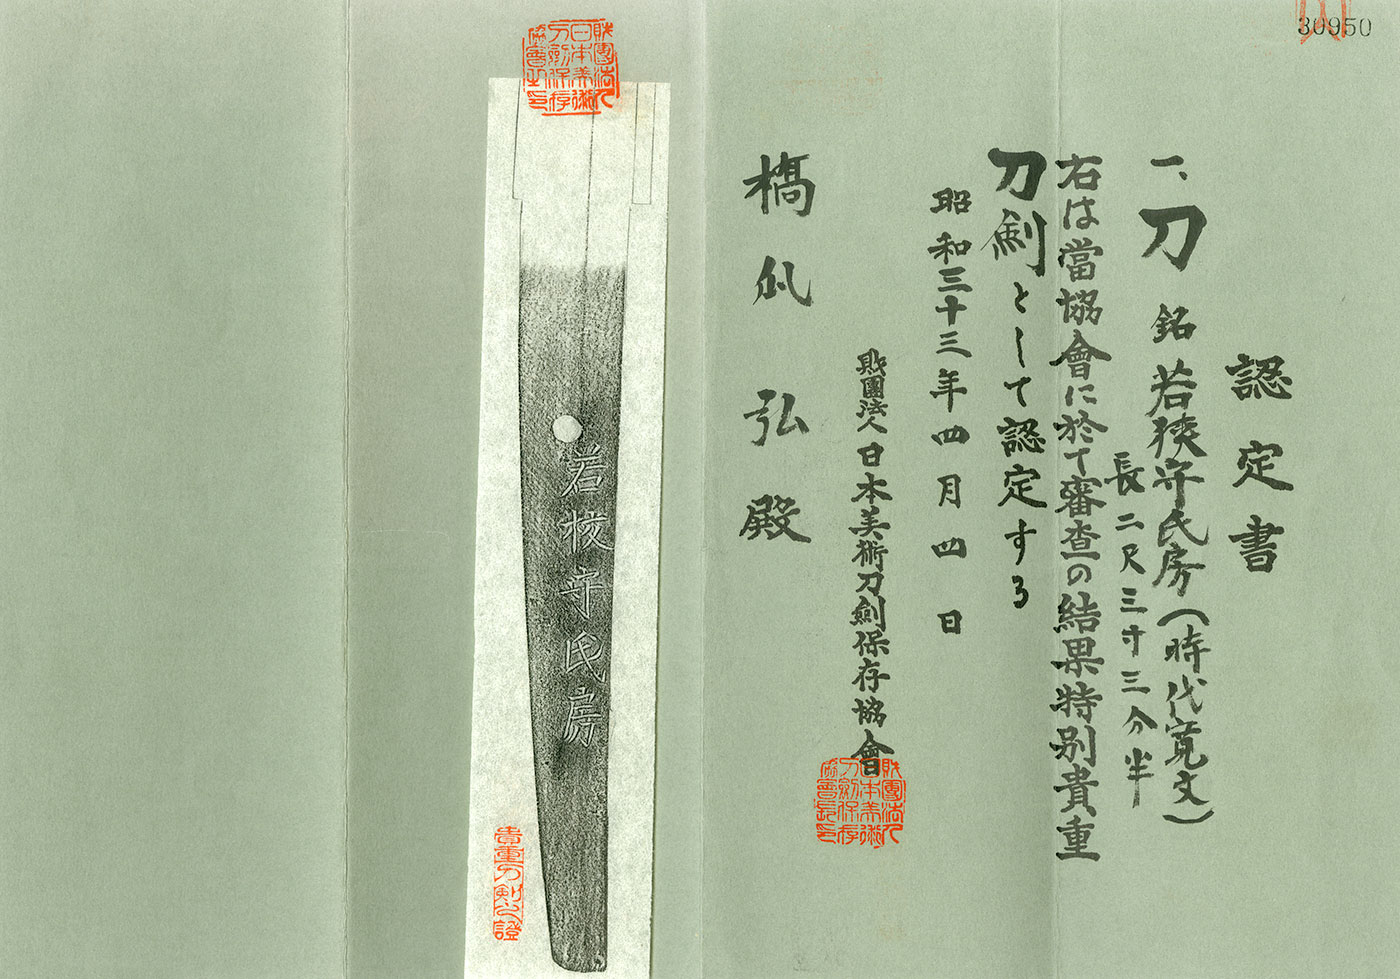 30950
認定書
一、刀 銘 若狹守氏房(時代寛文)
長二尺三寸三分半
右は當協會に於て審査の結果特別貴重
刀劍として認定する
昭和三十三年四月四日
財團法人日本美術刀劍保存協會
財團法人
日本美術
刀劍保存
協會長印
橋爪弘殿
財團法人
日本美術
刀劍保存
協會之印
若狹守氏房
貴重刀剣之證